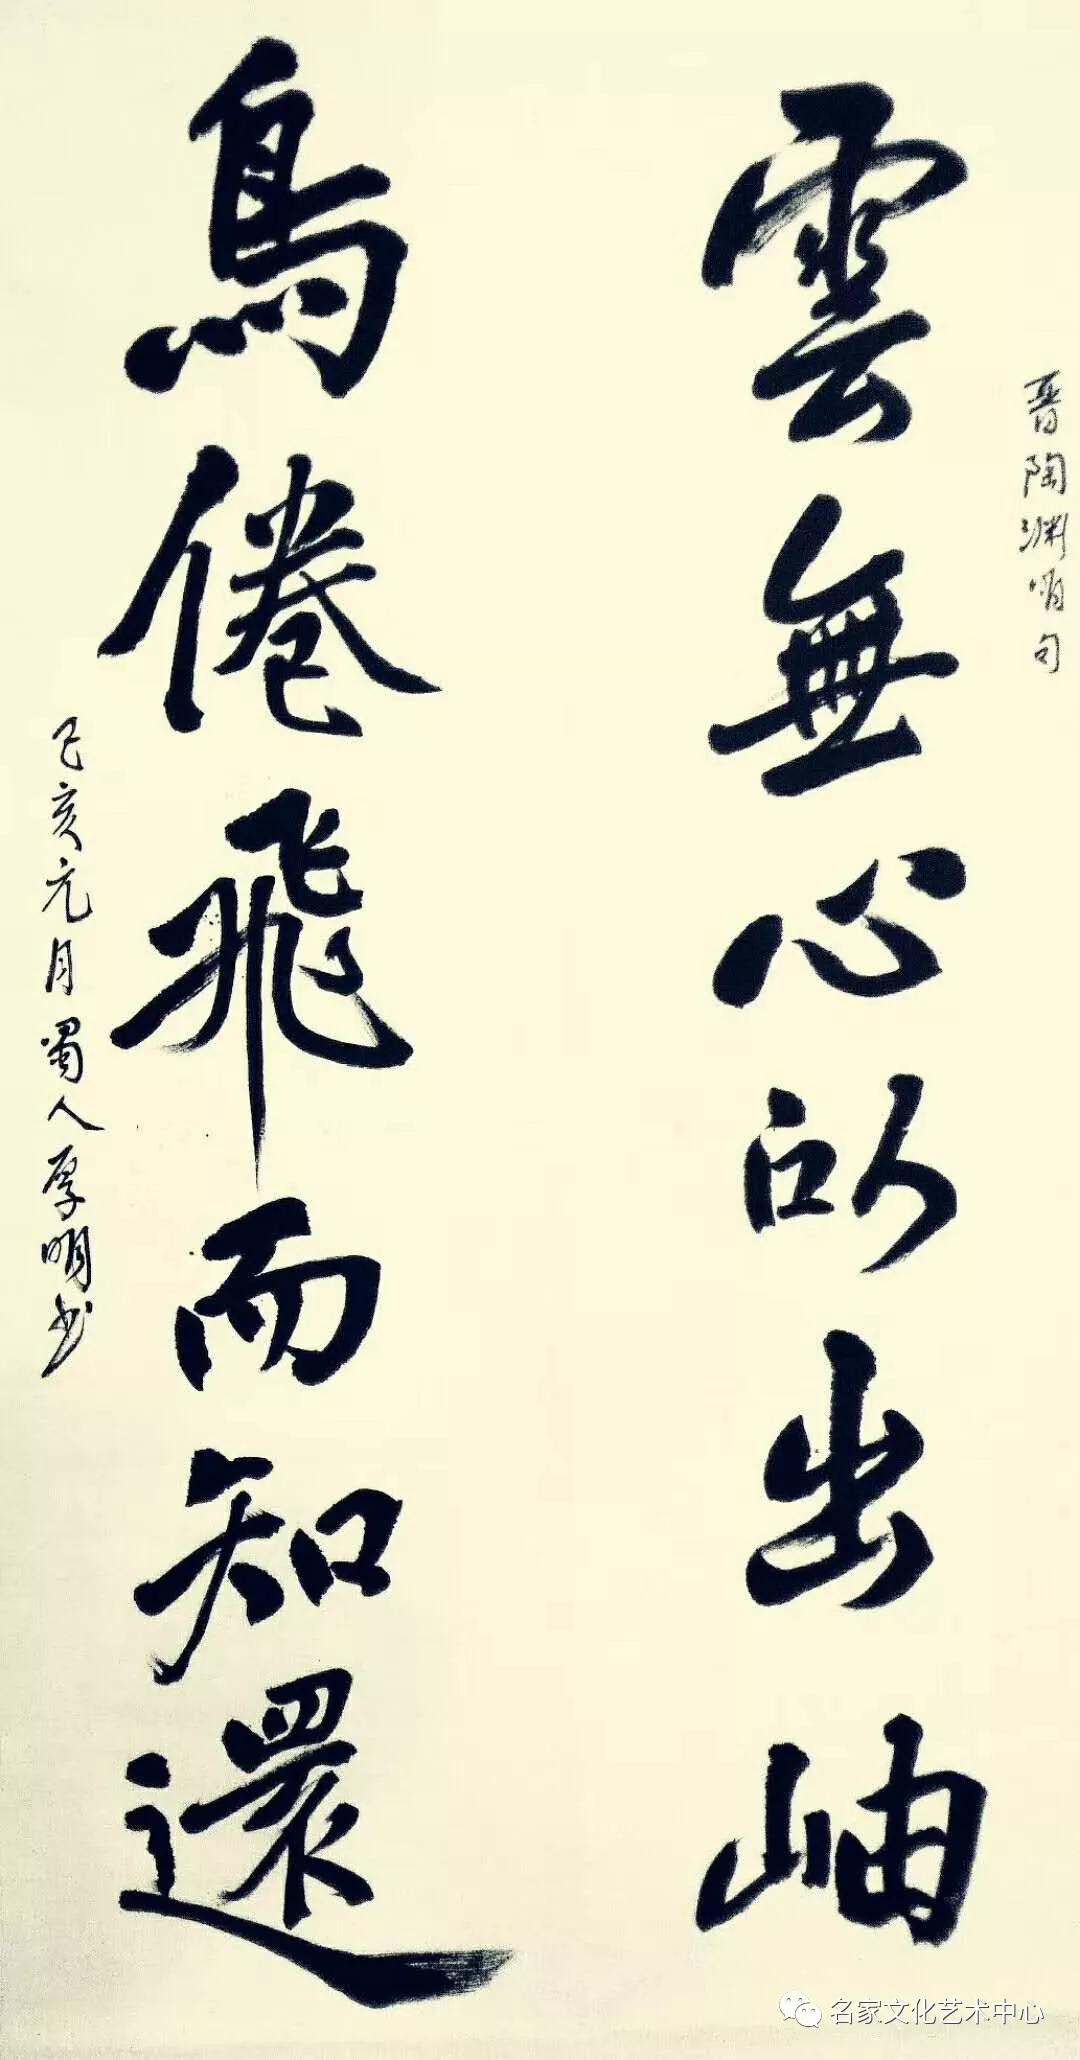 晋陶渊明句
雲無心以出岫
鳥倦飛而知還
己亥元月蜀人厚明书
名家文化艺术中心